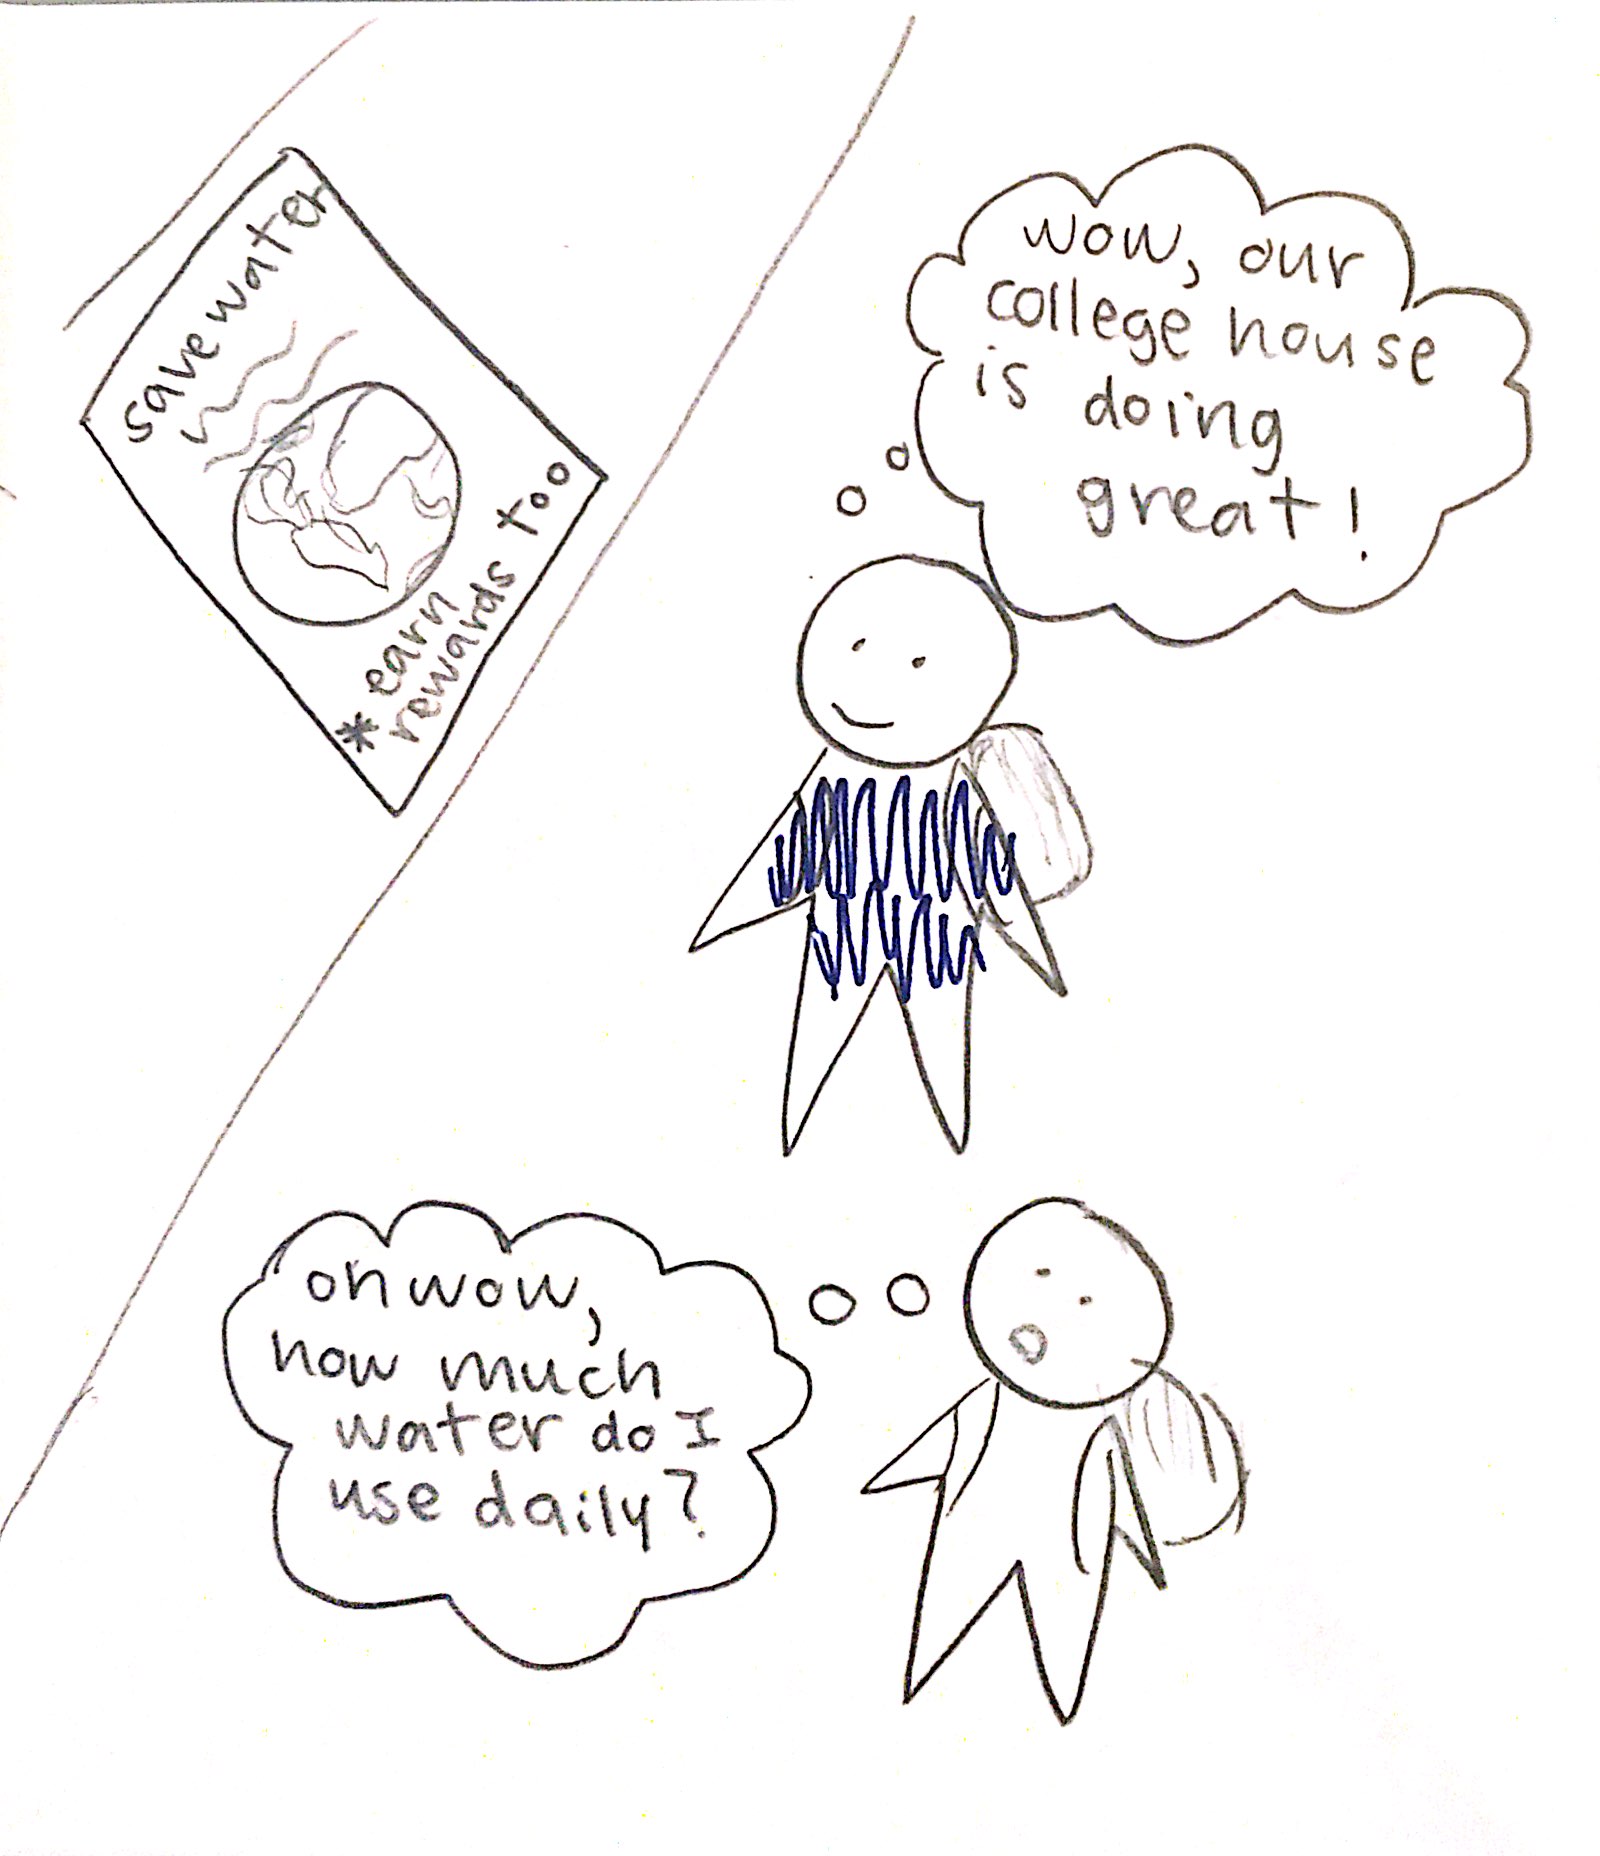 save water
* earn
rewards too
wow, our
college house
is doing
great!
oh wow,
how much
water do I
use daily?